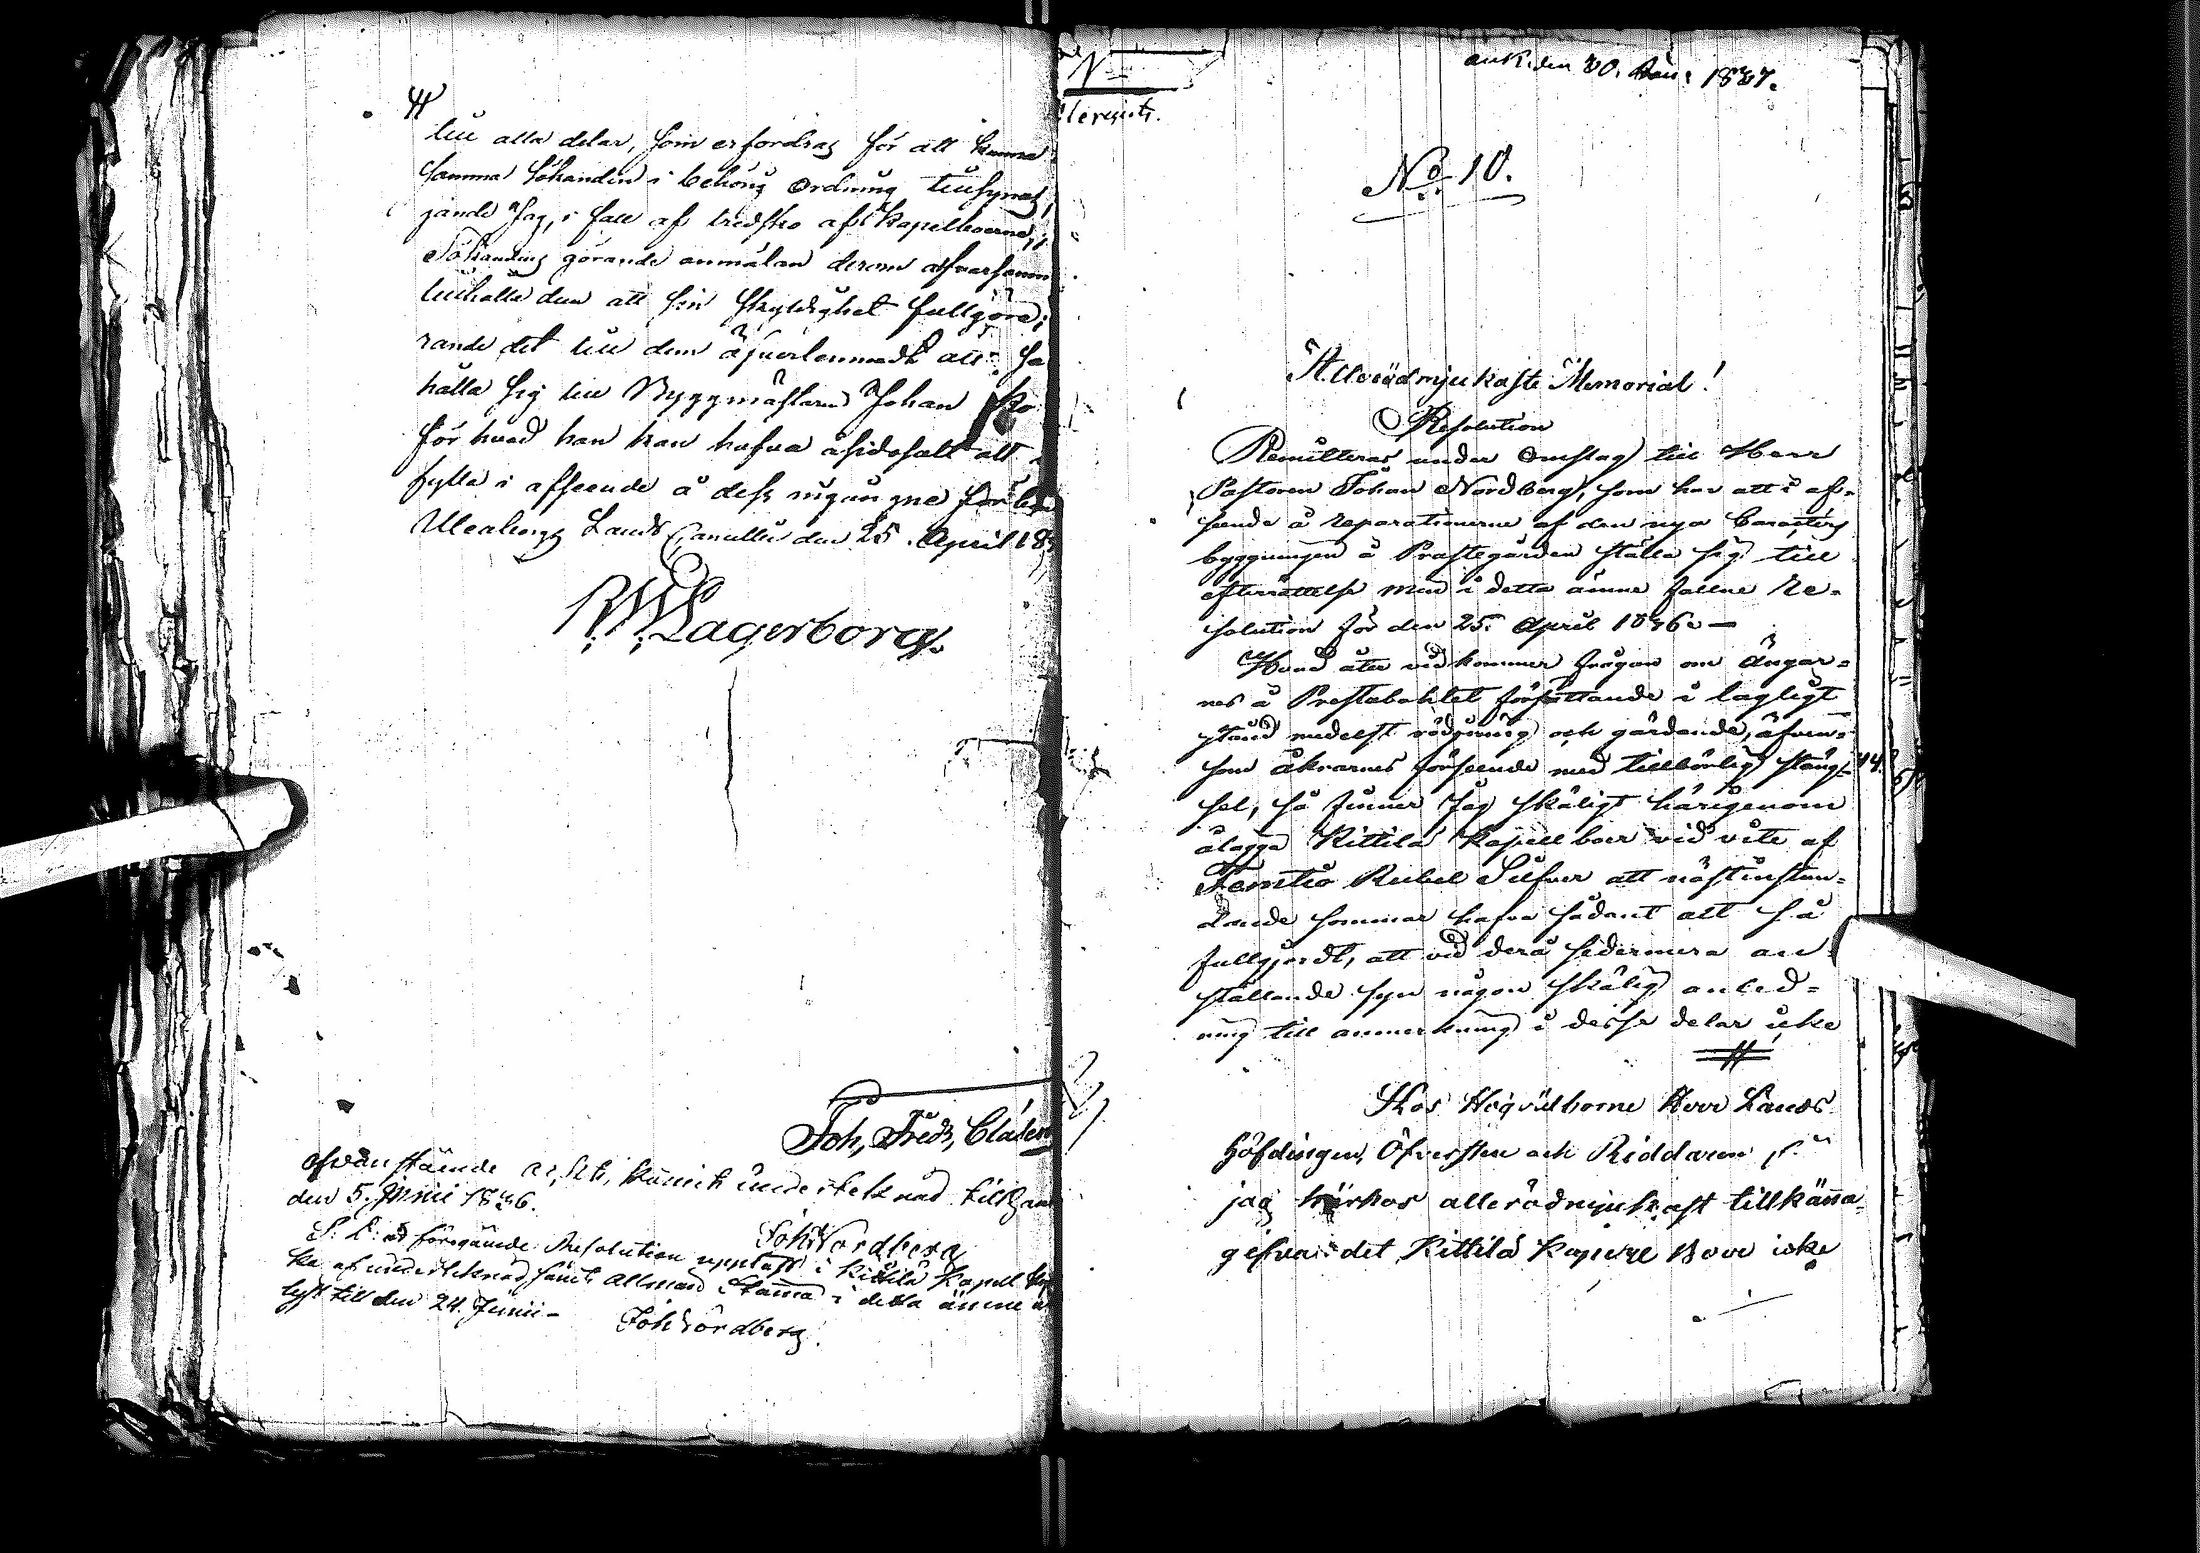 till alla delar, som erfordras för att kunna
samma Sökanden i behörig ordning tillsynas,
jande Jag, i fall af tredsko af Kapellboerne, i
Sökandens görande anmälan derom
tillhålla dem att sin skyldighet fullgöra;
rande det till dem öfverlemnadt att
hålla sig till Byggmästaren Johan
för hvad han kan hafva åsidosatt att
fylla i afseende å dess ingångne
Uleaborgs Lands Cancellie den 25. April 18
RW Lagerborg.
Joh, Fredr, Clasen
Ofvanstående undertecknad tillhanda
den 5. Junii 1836.
Joh Nordberg
S. L. är föregående Resolution uppläst i Kittilä Kapell
ka af undertecknad, samt Allmän Stämma i detta ämne
lyst till den 24. Junii -
Joh Nordberg
ank. den 30. 1837.
No. 10.
Allerödmjukaste Memorial!
Resolution
Remitteras under Omslag till Herr
Pastoren Johan Nordberg, som har att i af-
seende å reparationerne af den nya
byggningen å Prästegården ställa sig till
efterrättelse min i detta ämne fallne Re-
solution för den 25. April 1836. —
Hvad åter vidkommer frågan om ängar-
nes å Prestabohlet försättande i lagligt
stånd medelst rödjning och gärdande, äfven-
som åkrarnes förseende med tillbörlig stäng-
sel, så finner Jag skäligt härigenom
ålägga Kittilä Kapellboer vid vite af
Femtio Rubel Silfver att nästinstun-
dande sommar hafva sådant allt så
fullgjordt, att vid derå sedermera an-
ställande syn någon skälig anled-
ning till anmerkning i desse delar icke
Hos Högvälborne Herr Lands
Höfdingen, Öfversten och Riddaren
jag härhos allerödmjukast tillkänna-
gifva det Kittilä Kapell Boer icke